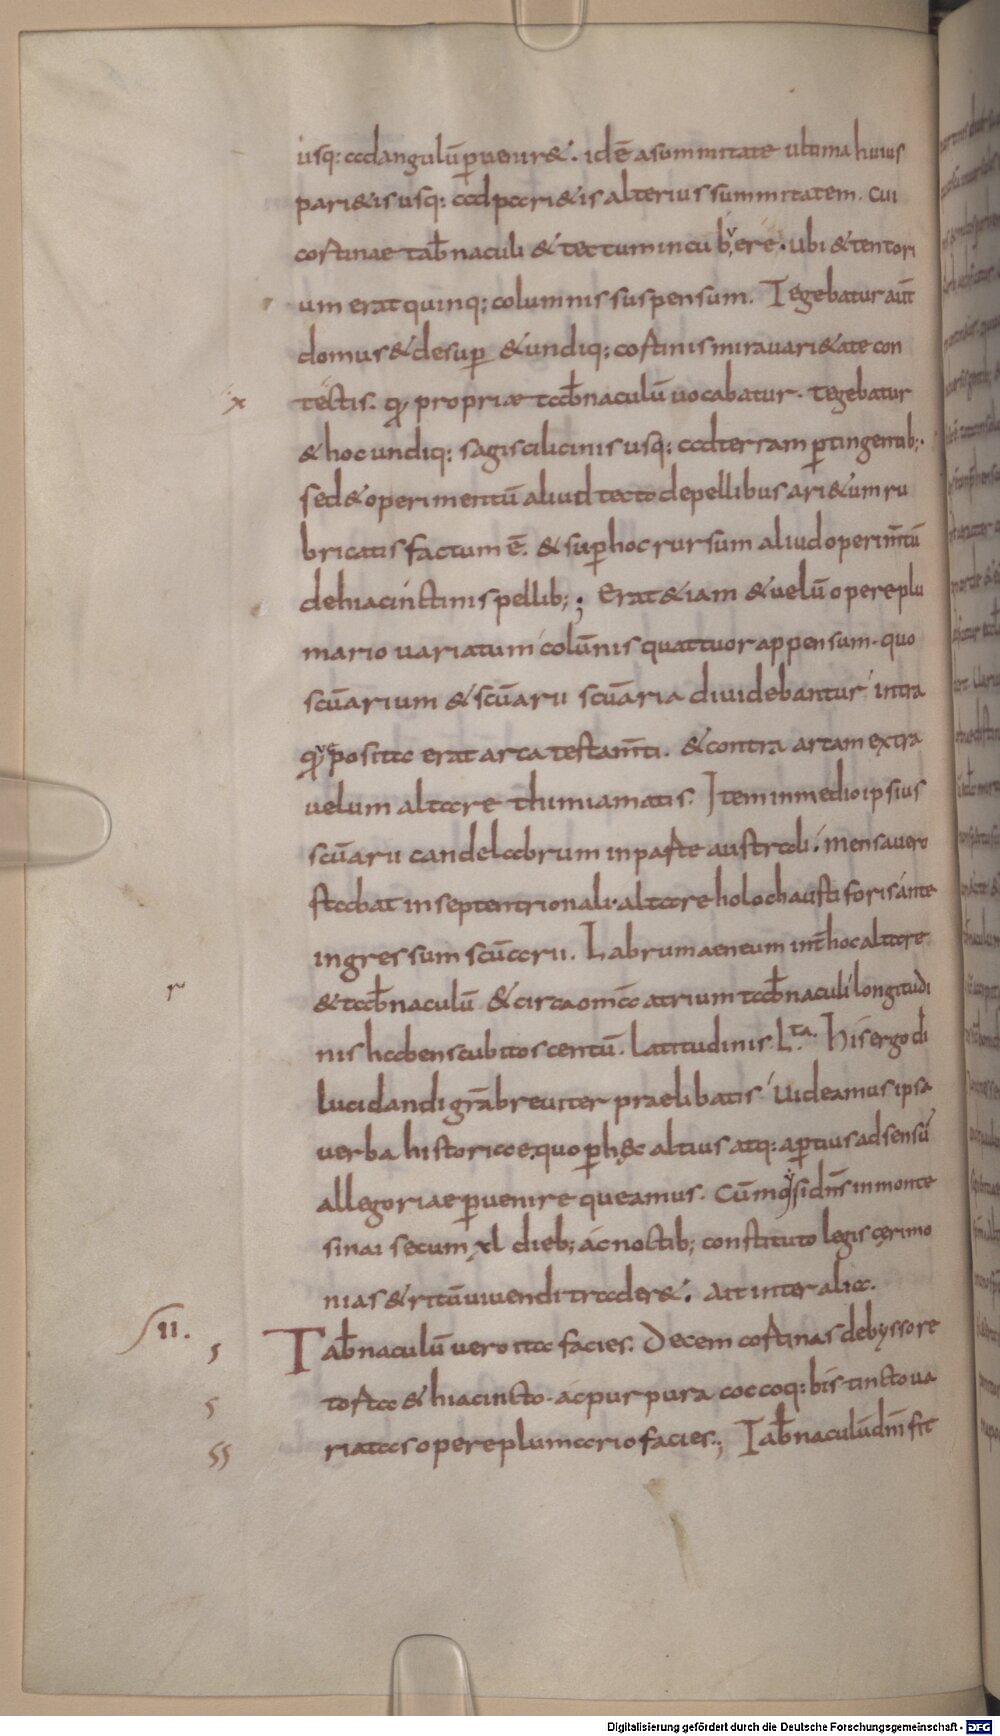 usq: ad angulū ꝑuenir&. idē asummitate ultima huius
pari&is usq: ad pari&is alterius summitatem. cui
cortinae tab̄naculi & tectum incub uerē. ubi & tentori
um erat quinq; columnis suspensum. Tegebatur aūt
domus & desuꝑ & undiq; cortinis mira uari&ate con
tectis. qđ propriæ tab̄naculū uocabatur. tegebatur
& hoc undiq: sagis cilicinis usq: ad terram ꝑtingentib;.
sed & operimentū aliud tecto depellibus ari&um ru
bricatis factum ē. & suꝑ hoc rursum aliud operim̄tū
dehiacinctinis pellib;; Erat & iam & uelū opere plu
mario uariatum colūnis quattuor appensum. quo
sc̄uarium & sc̄uarii sc̄uaria diuidebantur intra
posita erat arca testam̄ti. & contra arcam extra
uelum altare thimiamatis. Item in medio ipsius
sc̄uarii candelabrum in parte australi. mensa uero
stabat in septentrionali. altare holochausti foris ante
ingressum sc̄uarii. Labrum aeneum int̄ hoc altare
& tab̄naculū & circa om̄ā atrium tab̄naculi longitudi
nis habens cubitos centū. Latitudinis. L.ta. His ergo di
lucidandi gr̄a breuiter praelibatis uideamus ipsa
uerba historiae, quo ꝑ hęc altius atq: aꝑtius ad sensū
allegoriae ꝑuenire queamus. Cūm dn̄s in monte
sinai secum xl dieb; ác noctib; constituto legis cęrimo
nias & ritū uiuendi trader&. ait inter alia.
ſII. Tab̄naculū uero ita facies. Decem cortinas de bysso re
torta & hiacincto. ác purpura coccoq: bis tincto ua
riatas opere plumario facies.; Tab̄naculū dn̄i fit
x
r
s
s
ss
Digitalisierung gefördert durch die Deutsche Forschungsgemeinschaft - DFG